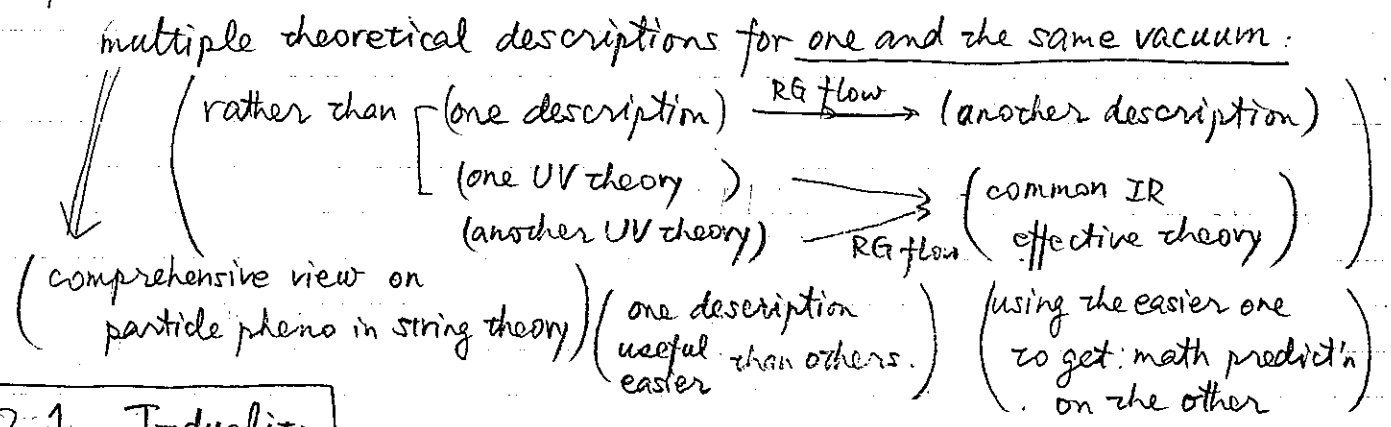 multiple theoretical descriptions for one and the same vacuum.
rather than (one description) RG flow (another description)
(one UV theory)
(another UV theory) RG flow (common IR
effective theory)
(comprehensive view on
particle pheno in string theory)
(one description
useful than others.
easier)
(using the easier one
to get: math predict'n
on the other)
2.1 T-duality